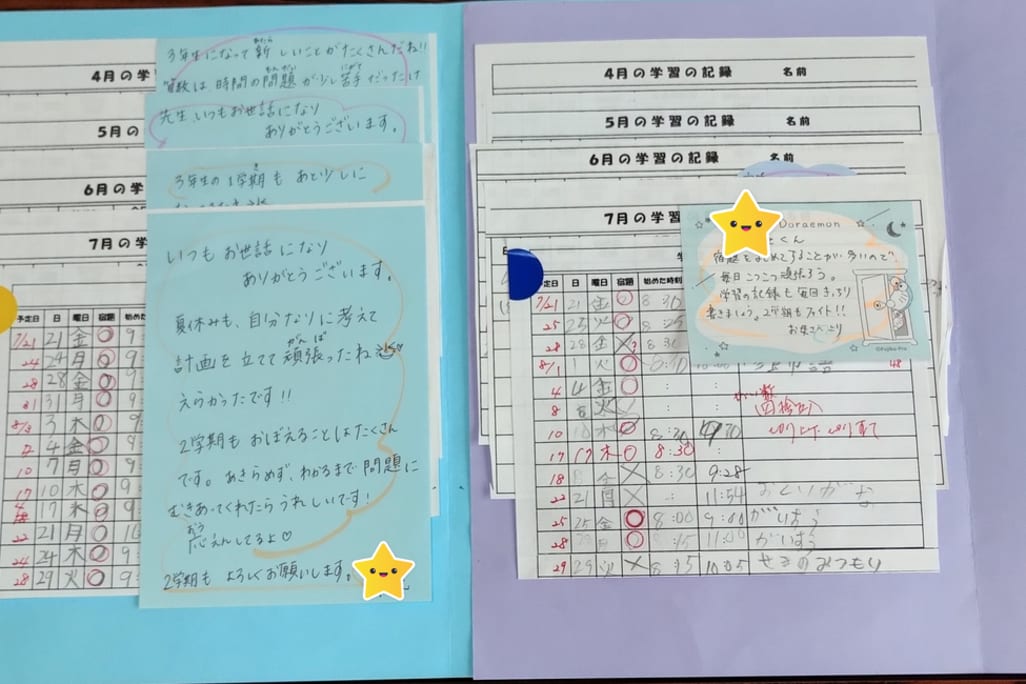 4月の学
5月の
6月の学
7月の学
3年生になって新しいことがたくさんだね!!
算数は、時間の問題が少し苦手だったけ
先生、いつもお世話になり
ありがとうございます。
3年生の1学期も あと少しに
いつも お世話になり
ありがとうございます。
夏休みも、自分なりに考えて
計画を立てて頑張ったね
えらかったです!!
2学期も おぼえることはたくさん
です。あきらめず、わかるまで問題に
むきあってくれたらうれしいです!
応えんしてるよ♡
2学期も よろしくお願いします。
予定日 日 曜日 宿題 始めた
7/21 21 金 ○ 9
24 24 月 ○ 9
28 28 金 ○ 9
31 31 月 ○ 9
8/3 3 木 ○ 9
4 金 ○ 9
10 7 月 ○ 9
17 10 木 ○ 9
17 木 ○ 9
22 21 月 ○ 10
24 24 木 ○ 9
28 29 火 ○ 9
4月の学習の記録 名前
5月の学習の記録 名前
6月の学習の記録 名前
7月の学習
Doraemon
くん
宿題をまとめてすることが多いので
毎日こつこつ頑張ろう。
学習の記録も毎日きっちり
書きましょう。2学期もファイト!!
より
予定日 日 曜日 宿題 始めた時刻
7/21 21 金 ○ 8:30
25 25 火 ○ 8:25
28 28 金 × 8:30
8/1 1 火 ○ 8:30
4 4 金 ○ : :
8 8 火 : :
がい数
四捨五入
10 10 木 ○ 8:30
切り上げ 切り捨て
17 17 木 ○ 8:30 :
18 × 8:30 9:28
22 21 月 × : 11:54 おくりがな
25 25 金 ○ 8:00 9:00 がいすう
28 ○ 8:15 11:00 がいすう
29 29 火 × 8:15 10:05 せきのみつもり